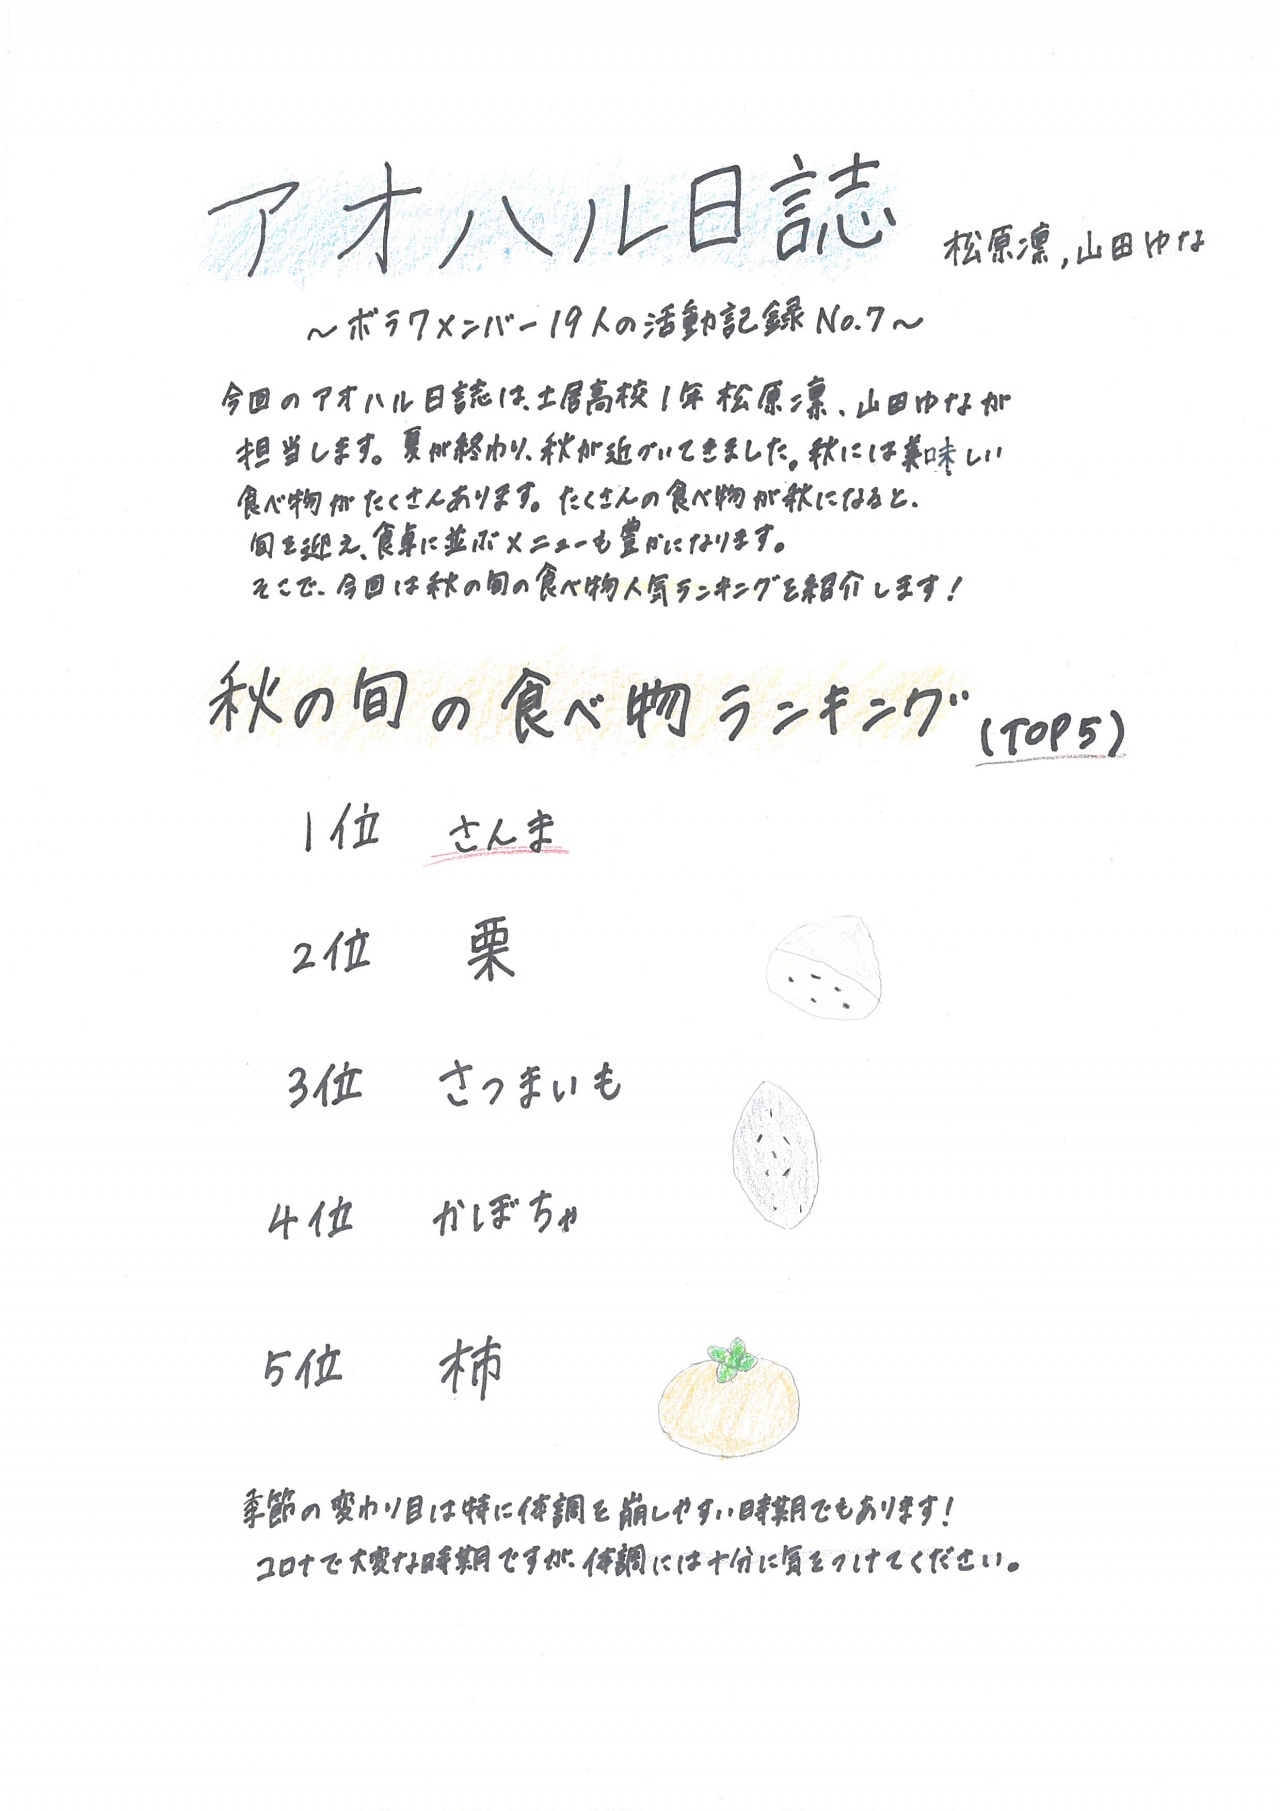 アオハル日誌
松原凛,山田ゆな
～ボラフメンバー19人の活動記録No.7～
今回のアオハル日誌は、土居高校1年松原凛、山田ゆなが
担当します。夏が終わり、秋が近づいてきました。秋には美味しい
食べ物がたくさんあります。たくさんの食べ物が秋になると、
旬を迎え、食卓に並ぶメニューも豊かになります。
そこで、今回は秋の旬の食べ物人気ランキングを紹介します!
秋の旬の食べ物ランキング(TOP5)
1位 さんま
2位 栗
3位 さつまいも
4位 かぼちゃ
5位 柿
季節の変わり目は特に体調を崩しやすい時期でもあります!
コロナで大変な時期ですが、体調には十分に気をつけてください。